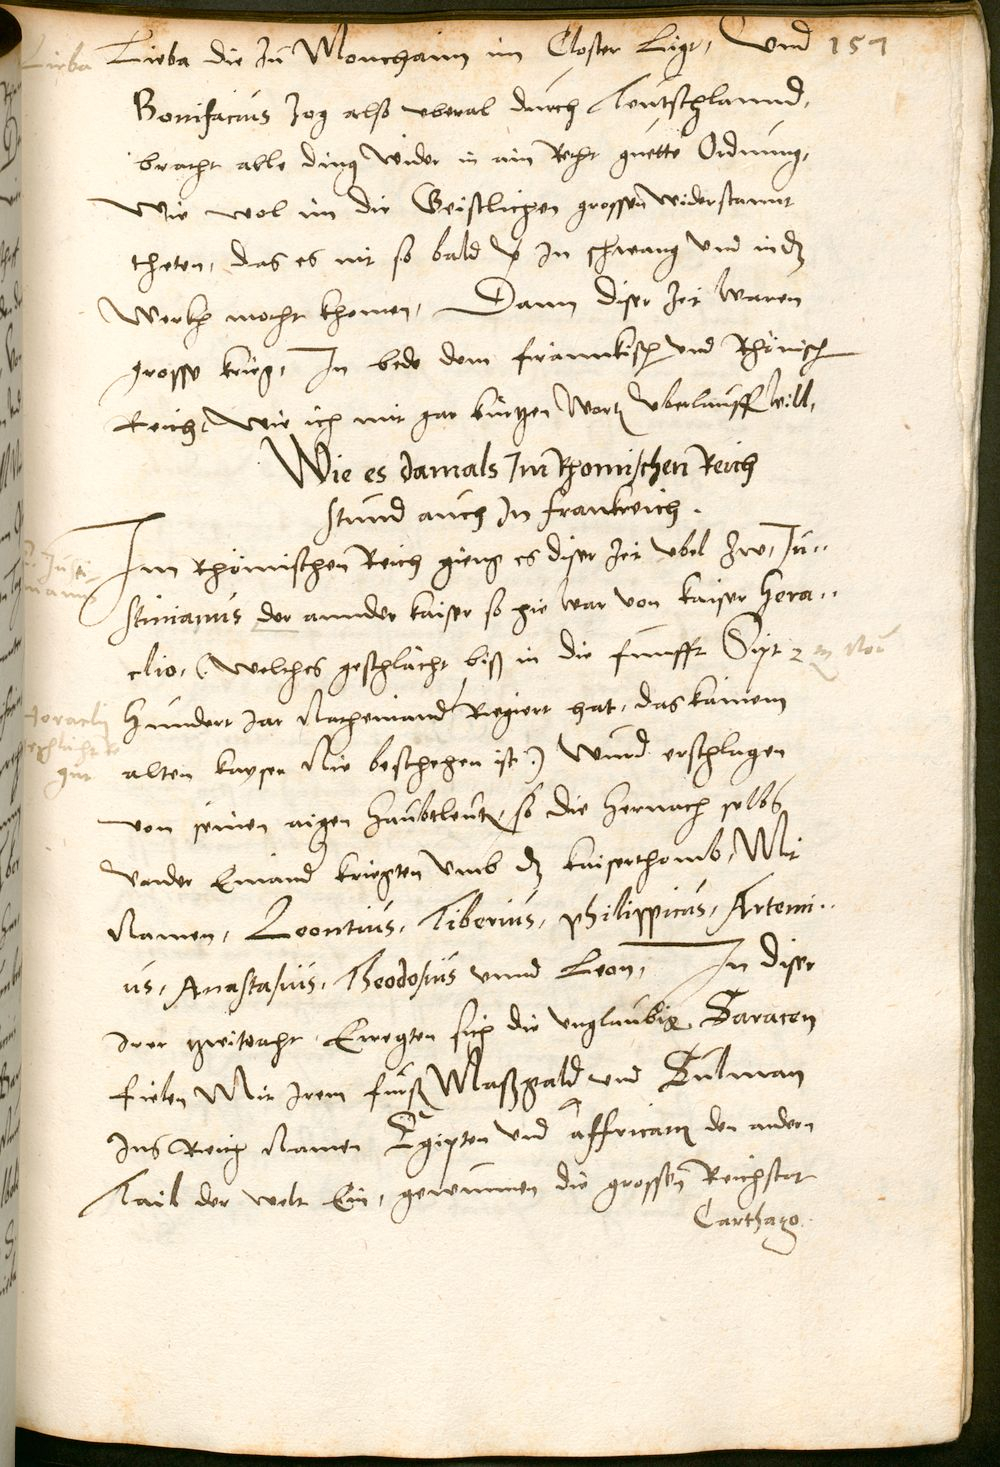 Lieba die zu Monchaim im Closter Ligt, Und 157
Lieba
Bonifacius zog also uberal durch Teutschlannd,
bracht alle ding wider in ain Recht guette Ordnung,
Wie wol im die Geistlichen grossen widerstannt
theten, das es nit so bald in schwang und in dz
Werkh mocht khomen, Dann diser Zeit waren
grosse krieg, In bede dem frännkisch und Rhömisch
Reich, Wie ich mit gar kurtzen Wortn uberlauff will,
Wie es damals Im Rhomischen Reich
stund auch In franckreich.
Im Rhömischen Reich gieng es diser Zeit ubel zw, Ju..
stinianus der annder kaiser so hie war von kaiser Hera..
clio, (welches geschlächt biß in die funfft Sipt
hundert Jar Nacheinand Regiert hat, das kainem
alten kaysern Nie beschehen ist:) Wurd erschlagen
von seinen aigen haubtleuten, so die hernach selbs
under Einand kriegten Umb dz kaiserthomb, Mit
Namen, Leontius, Tiberius, Philippicus, Artemi..
us, Anastasius, Theodosius unnd Leon, In diser
Irer zwitracht Erregten sich die unglaubig Saracen
fielen Mit Irem furst Maßgald und Sulman
Ins Reich Namen Egipten und affricam den andern
Tail der welt Ein, gewunnen die grossen Reichstat
Carthago.